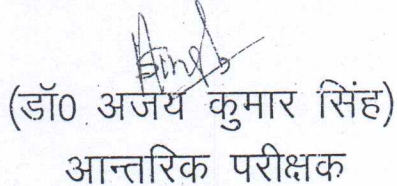 (डॉ0 अजय कुमार सिंह)
आन्तरिक परीक्षक